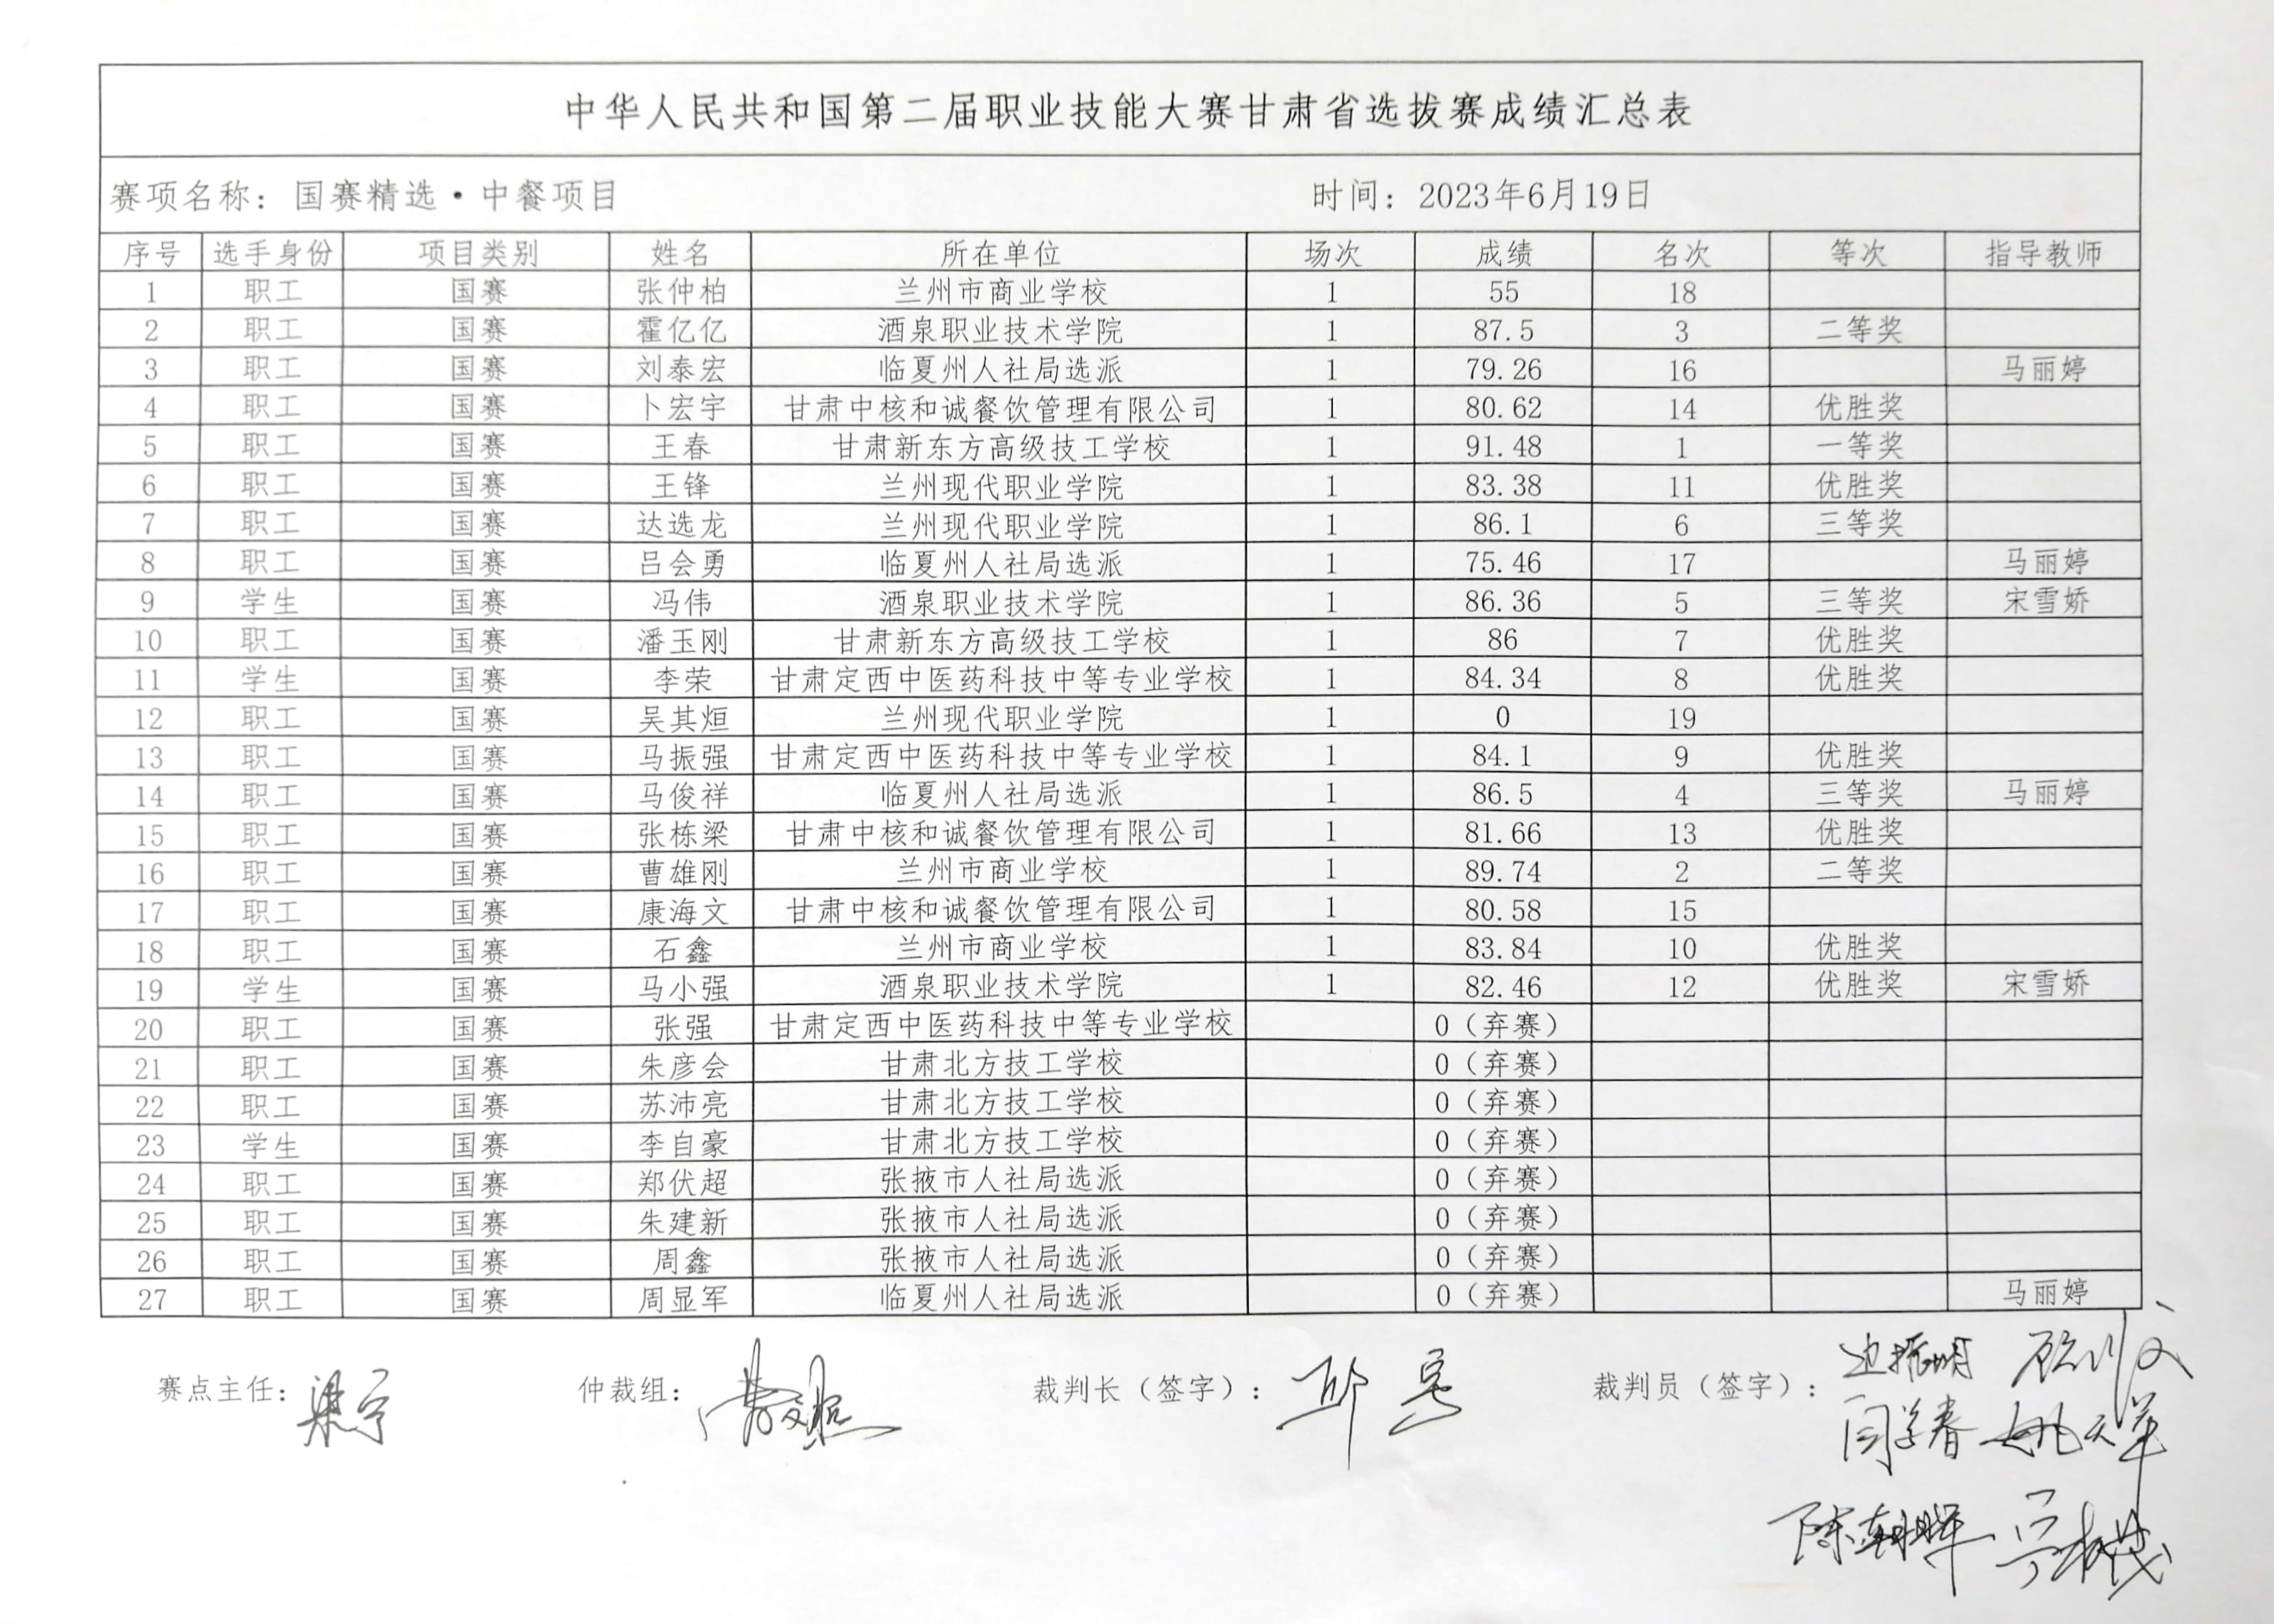 中华人民共和国第二届职业技能大赛甘肃省选拔赛成绩汇总表
赛项名称：国赛精选·中餐项目 时间：2023年6月19日
序号 选手身份 项目类别 姓名 所在单位 场次 成绩 名次 等次 指导教师
1 职工 国赛 张仲柏 兰州市商业学校 1 55 18
2 职工 国赛 霍亿亿 酒泉职业技术学院 1 87.5 3 二等奖
3 职工 国赛 刘泰宏 临夏州人社局选派 1 79.26 16 马丽婷
4 职工 国赛 卜宏宇 甘肃中核和诚餐饮管理有限公司 1 80.62 14 优胜奖
5 职工 国赛 王春 甘肃新东方高级技工学校 1 91.48 1 一等奖
6 职工 国赛 王锋 兰州现代职业学院 1 83.38 11 优胜奖
7 职工 国赛 达选龙 兰州现代职业学院 1 86.1 6 三等奖
8 职工 国赛 吕会勇 临夏州人社局选派 1 75.46 17 马丽婷
9 学生 国赛 冯伟 酒泉职业技术学院 1 86.36 5 三等奖 宋雪娇
10 职工 国赛 潘玉刚 甘肃新东方高级技工学校 1 86 7 优胜奖
11 学生 国赛 李荣 甘肃定西中医药科技中等专业学校 1 84.34 8 优胜奖
12 职工 国赛 吴其烜 兰州现代职业学院 1 0 19
13 职工 国赛 马振强 甘肃定西中医药科技中等专业学校 1 84.1 9 优胜奖
14 职工 国赛 马俊祥 临夏州人社局选派 1 86.5 4 三等奖 马丽婷
15 职工 国赛 张栋梁 甘肃中核和诚餐饮管理有限公司 1 81.66 13 优胜奖
16 职工 国赛 曹雄刚 兰州市商业学校 1 89.74 2 二等奖
17 职工 国赛 康海文 甘肃中核和诚餐饮管理有限公司 1 80.58 15
18 职工 国赛 石鑫 兰州市商业学校 1 83.84 10 优胜奖
19 学生 国赛 马小强 酒泉职业技术学院 1 82.46 12 优胜奖 宋雪娇
20 职工 国赛 张强 甘肃定西中医药科技中等专业学校 0（弃赛）
21 职工 国赛 朱彦会 甘肃北方技工学校 0（弃赛）
22 职工 国赛 苏沛亮 甘肃北方技工学校 0（弃赛）
23 学生 国赛 李自豪 甘肃北方技工学校 0（弃赛）
24 职工 国赛 郑伏超 张掖市人社局选派 0（弃赛）
25 职工 国赛 朱建新 张掖市人社局选派 0（弃赛）
26 职工 国赛 周鑫 张掖市人社局选派 0（弃赛）
27 职工 国赛 周显军 临夏州人社局选派 0（弃赛） 马丽婷
赛点主任： 仲裁组： 裁判长（签字）： 裁判员（签字）： 边振明
闫学春 姚天军
陈朝晖